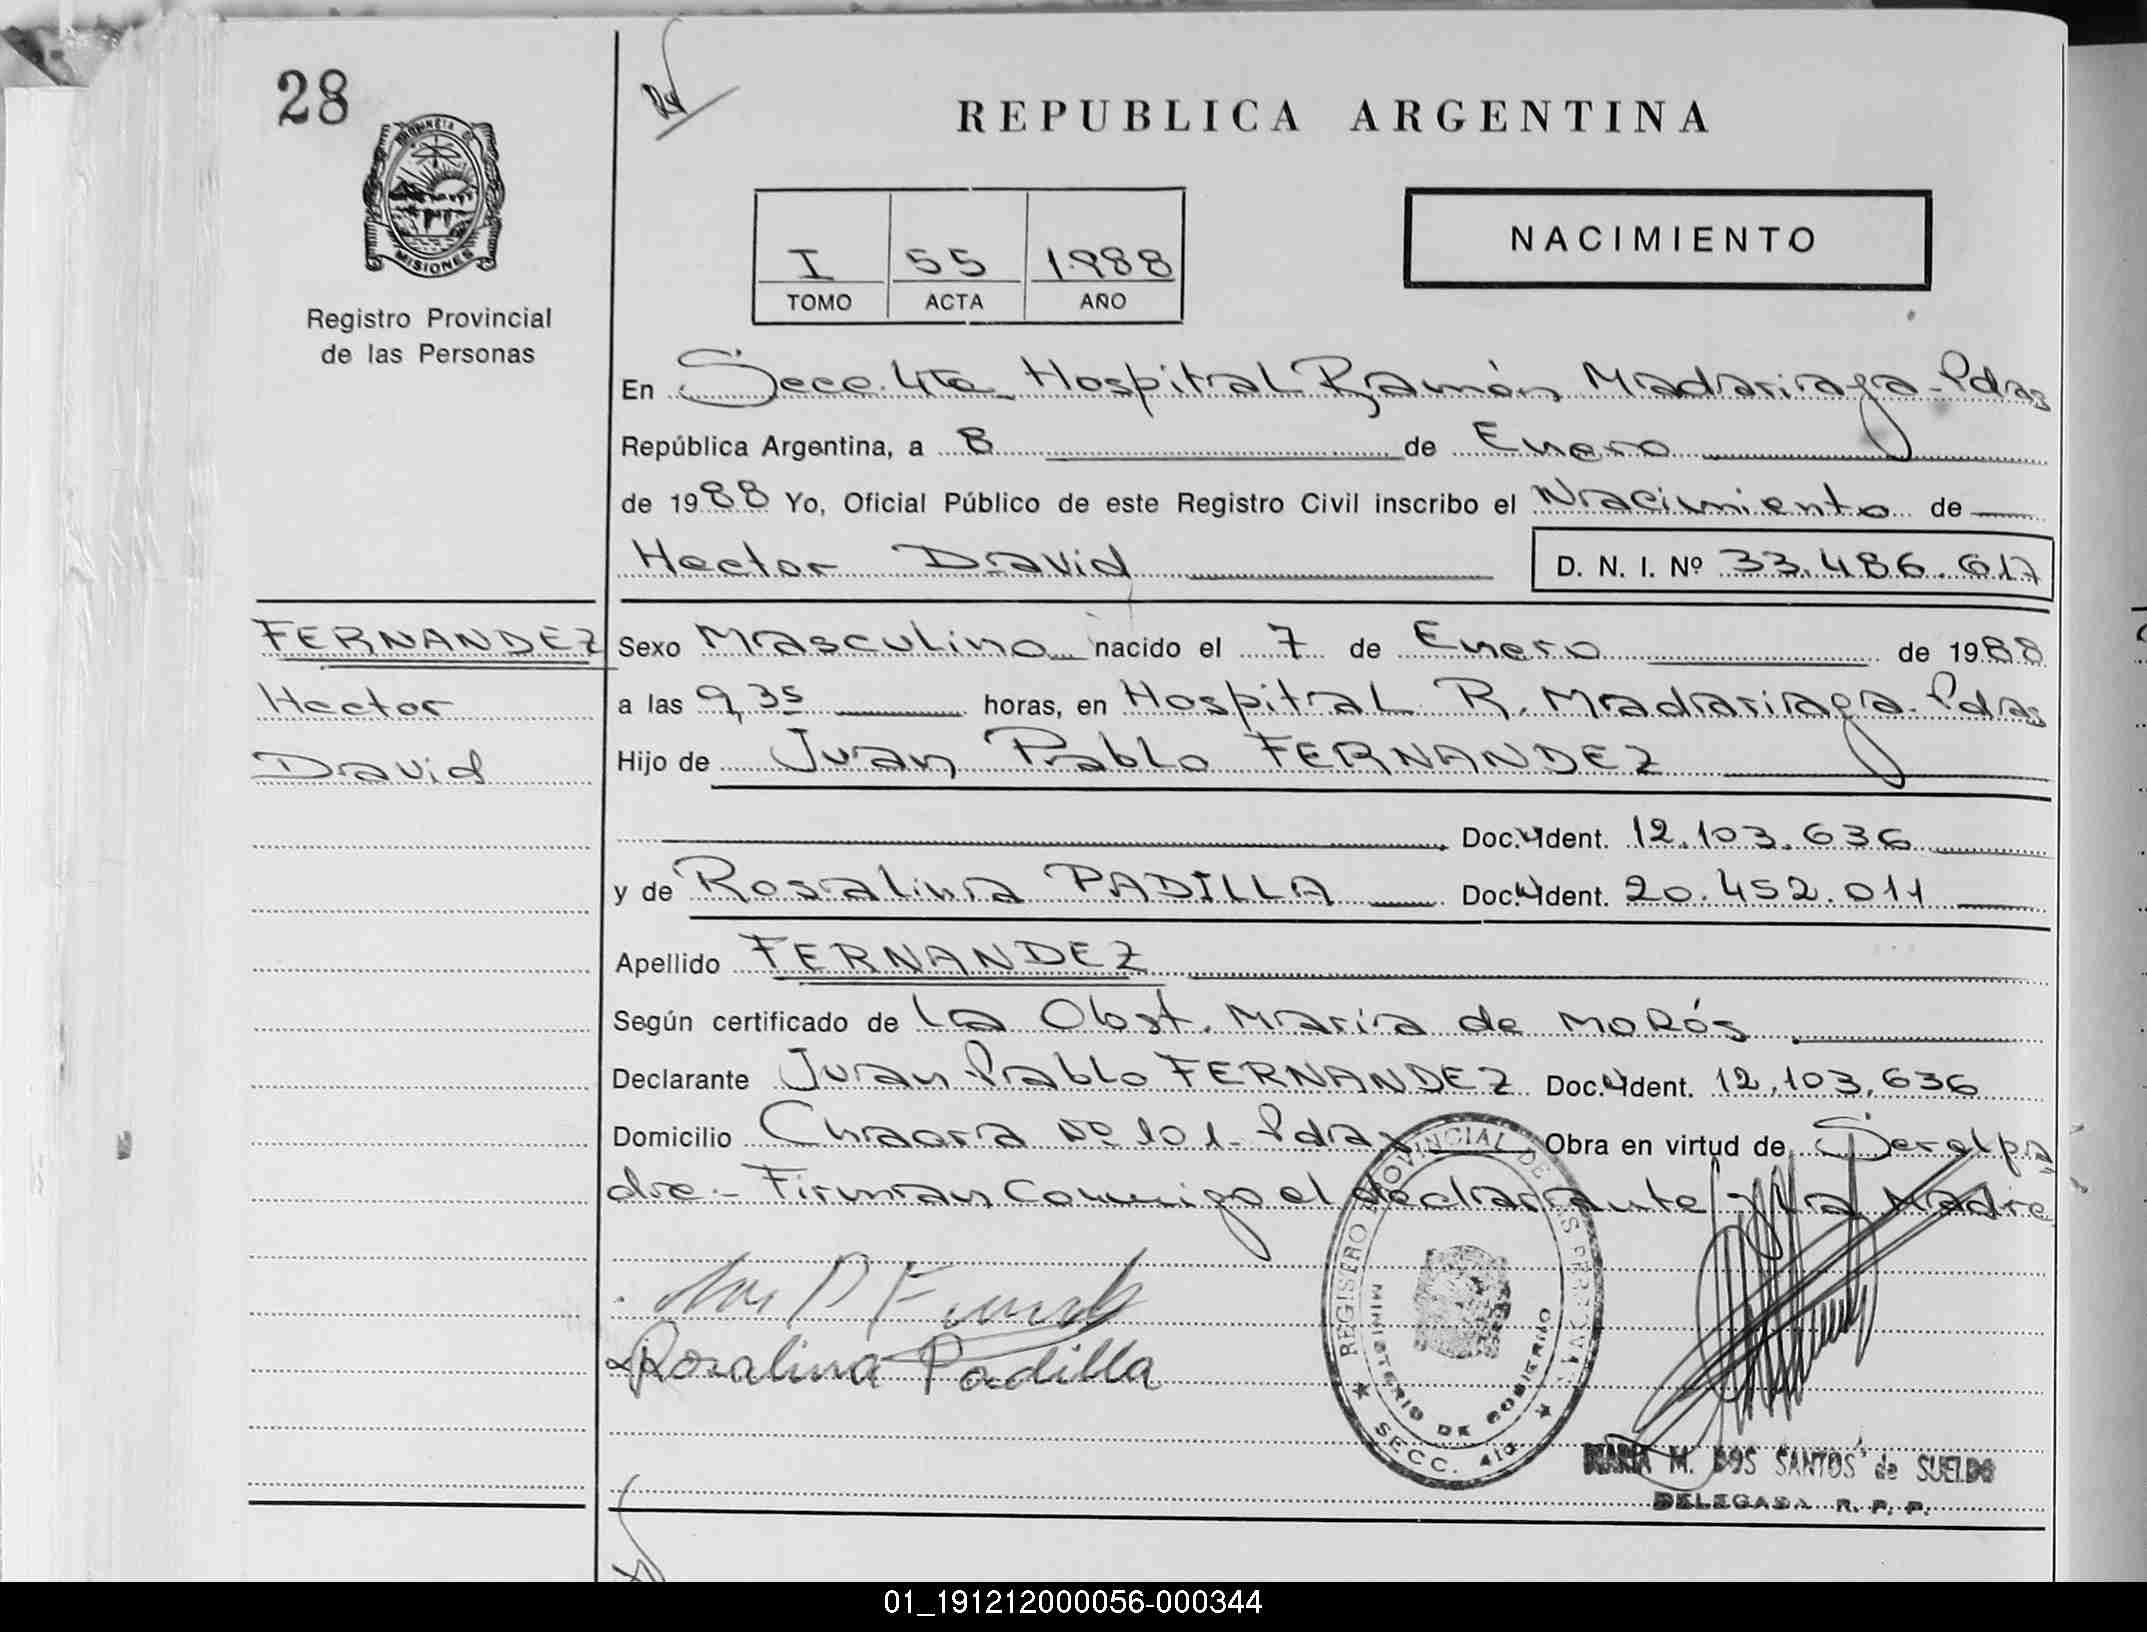 28
PROVINCIA D
MISIONES
Registro Provincial
de las Personas
REPUBLICA ARGENTINA
I 55 1988
TOMO ACTA AÑO
NACIMIENTO
En Secc. 4ta Hospital Ramón Madariaga - Pdas
República Argentina, a 8 de Enero
de 1988 Yo, Oficial Público de este Registro Civil inscribo el Nacimiento de
Hector David D. N. I. Nº 33.486.617
FERNANDEZ
Hector
David
Sexo Masculino nacido el 7 de Enero de 1988
a las 9,35 horas, en Hospital R. Madariaga - Pdas
Hijo de Juan Pablo FERNANDEZ
Doc. Ident. 12.103.636
y de Rosalina PADILLA Doc. Ident. 20.452.011
Apellido FERNANDEZ
Según certificado de La Obst. María de MORós
Declarante Juan Pablo FERNANDEZ Doc. Ident. 12,103,636
Domicilio Chacra Nº 101 - Pdas Obra en virtud de Ser el pa
dre.- Firman Conmigo el declarante y la Madre
Rosalina Padilla
REGISTRO PROVINCIAL DE LAS PERSONAS
MINISTERIO DE GOBIERNO
SECC. 4ta
MARIA M. DOS SANTOS de SUELDO
DELEGADA R. P. P.
01_191212000056-000344